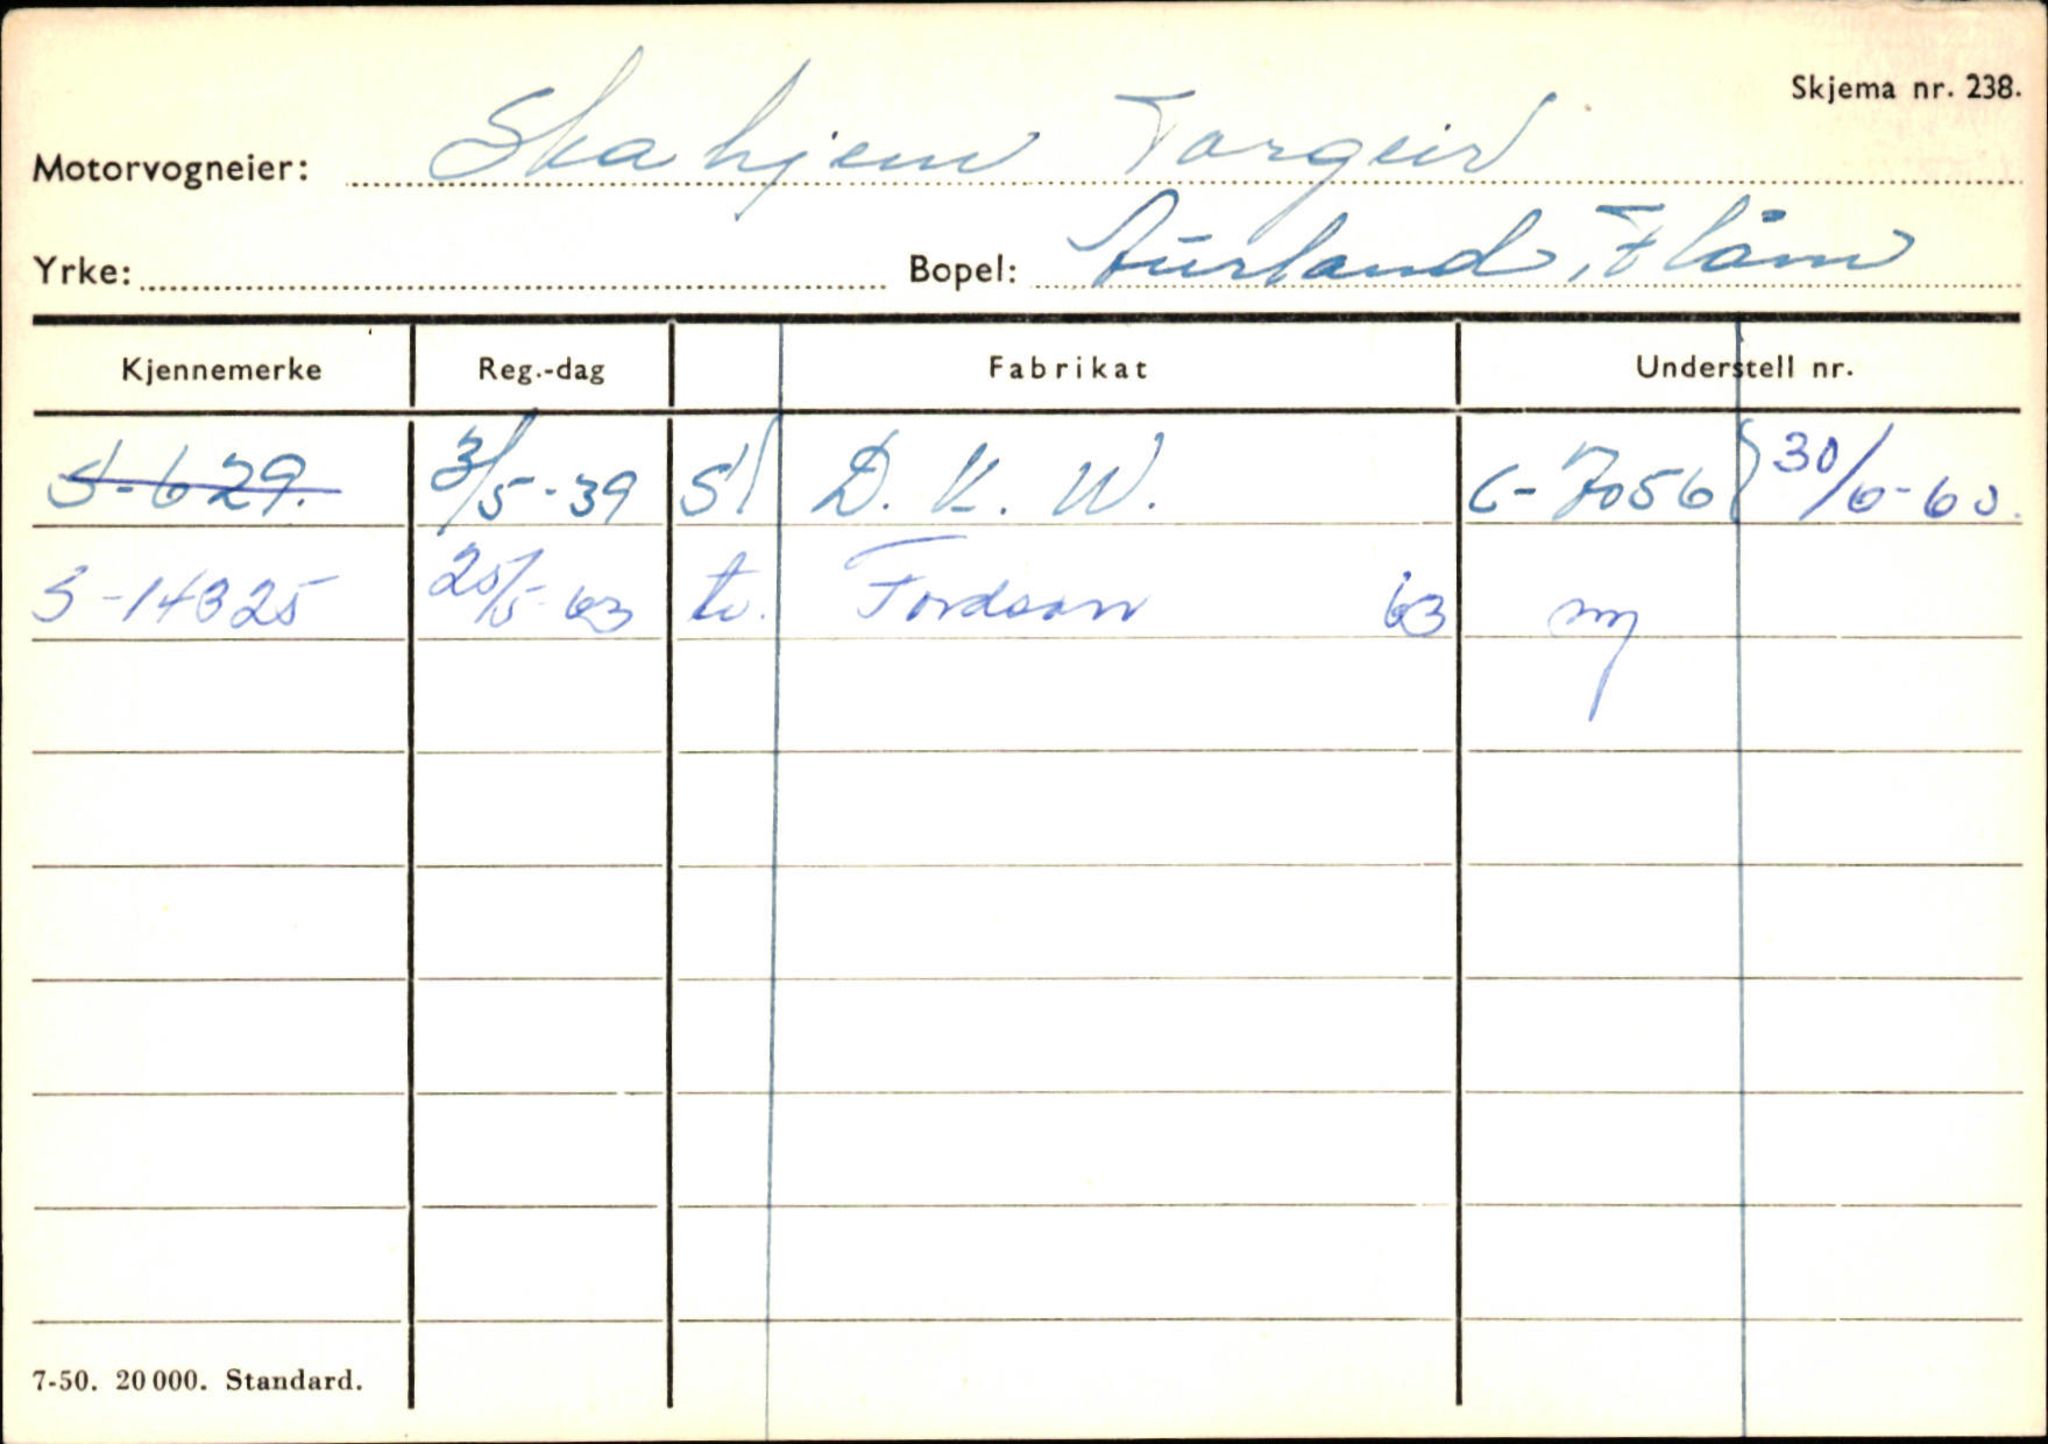 Skjema nr. 238.
Motorvogneier: Skahjem Torgeir
Yrke: Bopel: Aurland, Flåm
Kjennemerke Reg.-dag Fabrikat Understell nr.
S-629. 3/5-39 D. K. W. 6-7056 30/6-60.
S-14325 25/5-63 tr. Fordson 63 ny
7-50. 20 000. Standard.